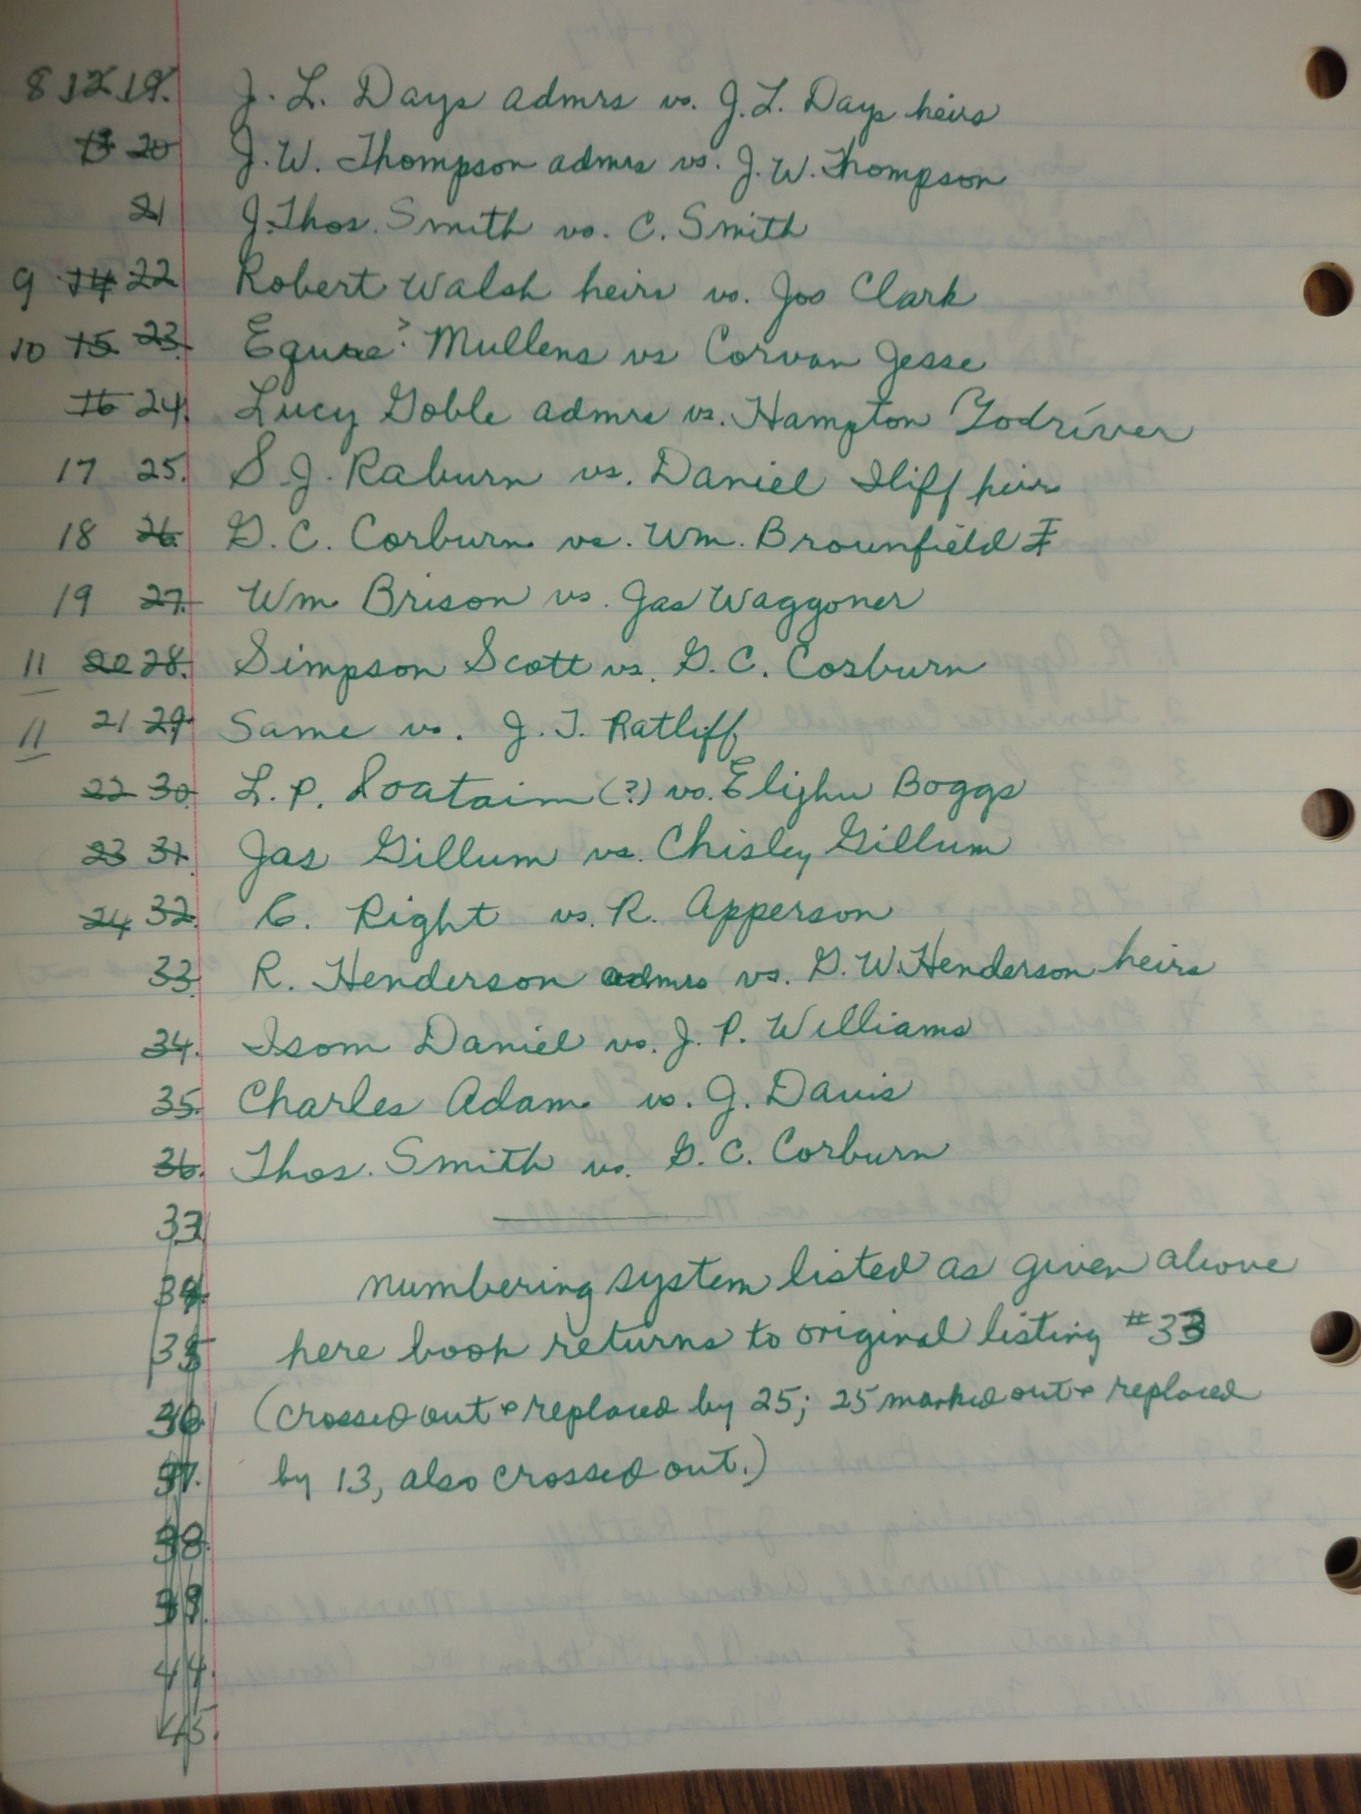 8 12 19. J. L. Days admrs vs. J. L. Days heirs
13 20 J. W. Thompson admrs vs. J. W. Thompson
21 J. Thos. Smith vs. C. Smith
9 14 22 Robert Walsh heirs vs. Jos Clark
10 15 23. Equire? Mullens vs Corvan Jesse
16 24. Lucy Goble admrs vs. Hampton Yodriver
17 25. S. J. Raburn vs. Daniel Iliff heirs
18 26. G. C. Corburn vs. Wm. Brounfield
19 27. Wm Brison vs. Jas Waggoner
11 20 28. Simpson Scott vs. G. C. Cosburn
11 21 29. Same vs. J. T. Ratliff
22 30. L. P. Soataim (?) vs. Elijhu Boggs
23 31. Jas Gillum vs. Chisley Gillum
24 32. C. Right vs. R. Apperson
33. R. Henderson admrs vs. G. W. Henderson heirs
34. Isom Daniel vs. J. P. Williams
35. Charles Adam vs. J. Davis
36. Thos. Smith vs. G. C. Corburn
33
34. numbering system listed as given above
35 here book returns to original listing #33
36 (crossed out & replaced by 25; 25 marked out & replaced
37. by 13, also crossed out.)
38.
44.
45.